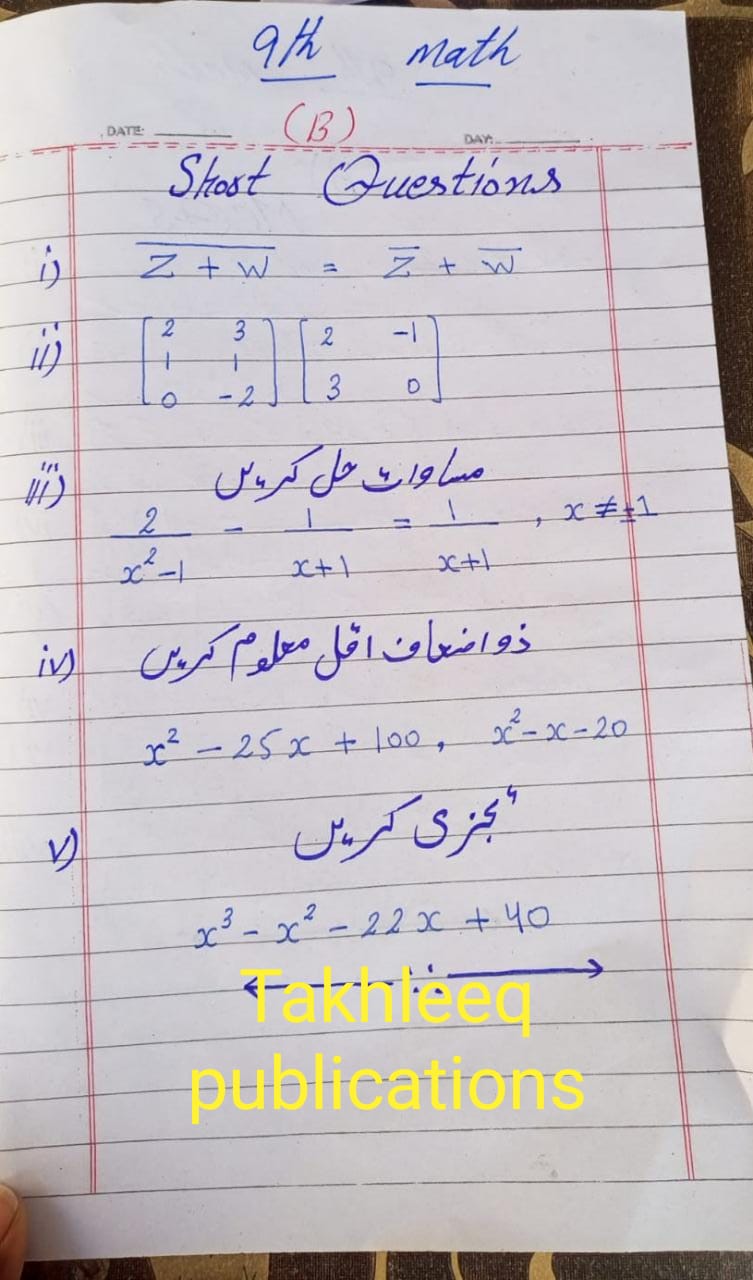 9th math
DATE: (B) DAY:
Short Questions
i) \overline{Z + W} = \overline{Z} + \overline{W}
ii) [2 3] [2 -1]
[1 1]
[0 -2] [3 0]
iii) مساوات حل کریں
2/(x²-1) - 1/(x+1) = 1/(x+1) , x ≠ ±1
iv) ذو اضعاف اقل معلوم کریں
x² - 25x + 100 , x² - x - 20
v) تجزی کریں
x³ - x² - 22x + 40
Takhleeq
publications